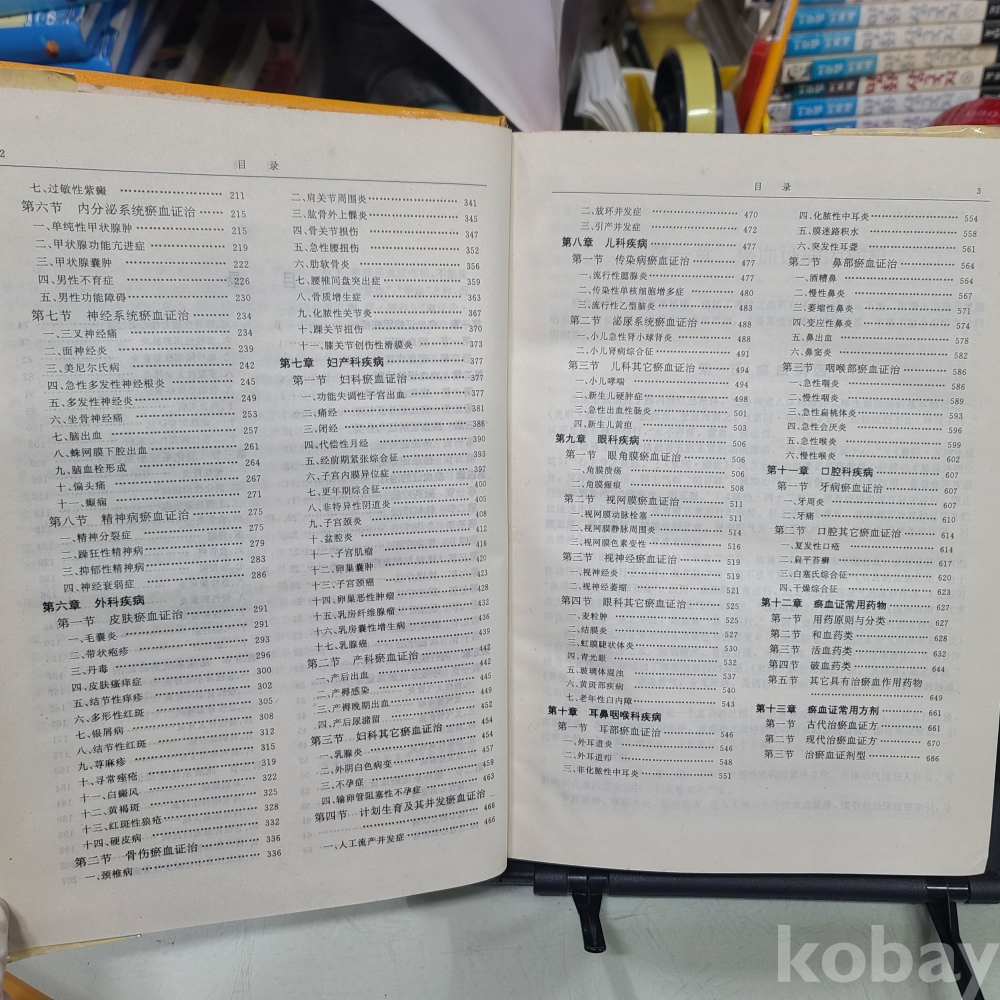 2
目 录
七、过敏性紫癜 …… 211
第六节 内分泌系统瘀血证治 …… 215
一、单纯性甲状腺肿 …… 215
二、甲状腺功能亢进症 …… 219
三、甲状腺囊肿 …… 222
四、男性不育症 …… 226
五、男性功能障碍 …… 230
第七节 神经系统瘀血证治 …… 234
一、三叉神经痛 …… 234
二、面神经炎 …… 239
三、美尼尔氏病 …… 242
四、急性多发性神经根炎 …… 245
五、多发性神经炎 …… 249
六、坐骨神经痛 …… 253
七、脑出血 …… 257
八、蛛网膜下腔出血 …… 261
九、脑血栓形成 …… 264
十、偏头痛 …… 267
十一、癫痫 …… 271
第八节 精神病瘀血证治 …… 275
一、精神分裂症 …… 275
二、躁狂性精神病 …… 279
三、抑郁性精神病 …… 283
四、神经衰弱症 …… 286
第六章 外科疾病
第一节 皮肤瘀血证治 …… 291
一、毛囊炎 …… 291
二、带状疱疹 …… 293
三、丹毒 …… 296
四、皮肤瘙痒症 …… 300
五、结节性痒疹 …… 302
六、多形性红斑 …… 305
七、银屑病 …… 308
八、结节性红斑 …… 312
九、荨麻疹 …… 315
十、寻常痤疮 …… 319
十一、白癜风 …… 322
十二、黄褐斑 …… 325
十三、红斑性狼疮 …… 328
十四、硬皮病 …… 332
第二节 骨伤瘀血证治 …… 336
一、颈椎病 …… 336
二、肩关节周围炎 …… 341
三、肱骨外上髁炎 …… 345
四、骨关节损伤 …… 347
五、急性腰扭伤 …… 352
六、肋软骨炎 …… 356
七、腰椎间盘突出症 …… 359
八、骨质增生症 …… 363
九、化脓性关节炎 …… 367
十、踝关节扭伤 …… 370
十一、膝关节创伤性滑膜炎 …… 373
第七章 妇产科疾病 …… 377
第一节 妇科瘀血证治 …… 377
一、功能失调性子宫出血 …… 377
二、痛经 …… 381
三、闭经 …… 386
四、代偿性月经 …… 390
五、经前期紧张综合征 …… 393
六、子宫内膜异位症 …… 397
七、更年期综合征 …… 400
八、非特异性阴道炎 …… 405
九、子宫颈炎 …… 408
十、盆腔炎 …… 412
十一、子宫肌瘤 …… 416
十二、卵巢囊肿 …… 420
十三、子宫颈癌 …… 423
十四、卵巢恶性肿瘤 …… 428
十五、乳房纤维腺瘤 …… 432
十六、乳房囊性增生病 …… 436
十七、乳腺癌 …… 439
第二节 产科瘀血证治 …… 442
一、产后出血 …… 442
二、产褥感染 …… 445
三、产褥晚期出血 …… 449
四、产后尿潴留 …… 451
第三节 妇科其它瘀血证治 …… 454
一、乳腺炎 …… 454
二、外阴白色病变 …… 457
三、不孕症 …… 459
四、输卵管阻塞性不孕症 …… 463
第四节 计划生育及其并发瘀血证治
…… 466
一、人工流产并发症 …… 466
目 录
3
二、放环并发症 …… 470
三、引产并发症 …… 472
第八章 儿科疾病 …… 477
第一节 传染病瘀血证治 …… 477
一、流行性腮腺炎 …… 477
二、传染性单核细胞增多症 …… 480
三、流行性乙型脑炎 …… 483
第二节 泌尿系统瘀血证治 …… 488
一、小儿急性肾小球肾炎 …… 488
二、小儿肾病综合征 …… 491
第三节 儿科其它瘀血证治 …… 494
一、小儿哮喘 …… 494
二、新生儿硬肿症 …… 498
三、急性出血性肠炎 …… 501
四、新生儿黄疸 …… 503
第九章 眼科疾病 …… 506
第一节 眼角膜瘀血证治 …… 506
一、角膜溃疡 …… 506
二、角膜瘢痕 …… 508
第二节 视网膜瘀血证治 …… 511
一、视网膜动脉栓塞 …… 511
二、视网膜静脉周围炎 …… 514
三、视网膜色素变性 …… 516
第三节 视神经瘀血证治 …… 519
一、视神经炎 …… 519
二、视神经萎缩 …… 521
第四节 眼科其它瘀血证治 …… 525
一、麦粒肿 …… 525
二、结膜炎 …… 527
三、虹膜睫状体炎 …… 530
四、青光眼 …… 532
五、玻璃体混浊 …… 537
六、黄斑部疾病 …… 540
七、老年性白内障 …… 543
第十章 耳鼻咽喉科疾病
第一节 耳部瘀血证治 …… 546
一、外耳道炎 …… 546
二、外耳道疖 …… 548
三、非化脓性中耳炎 …… 551
四、化脓性中耳炎 …… 554
五、膜迷路积水 …… 558
六、突发性耳聋 …… 561
第二节 鼻部瘀血证治 …… 564
一、酒糟鼻 …… 564
二、慢性鼻炎 …… 567
三、萎缩性鼻炎 …… 571
四、变应性鼻炎 …… 574
五、鼻出血 …… 578
六、鼻窦炎 …… 582
第三节 咽喉部瘀血证治 …… 586
一、急性咽炎 …… 586
二、慢性咽炎 …… 589
三、急性扁桃体炎 …… 593
四、急性会厌炎 …… 596
五、急性喉炎 …… 599
六、慢性喉炎 …… 602
第十一章 口腔科疾病 …… 607
第一节 牙病瘀血证治 …… 607
一、牙周炎 …… 607
二、牙痛 …… 610
第二节 口腔其它瘀血证治 …… 614
一、复发性口疮 …… 614
二、扁平苔癣 …… 617
三、白塞氏综合征 …… 620
四、干燥综合征 …… 623
第十二章 瘀血证常用药物 …… 627
第一节 用药原则与分类 …… 627
第二节 和血药类 …… 628
第三节 活血药类 …… 632
第四节 破血药类 …… 644
第五节 其它具有治瘀血作用药物
…… 649
第十三章 瘀血证常用方剂 …… 661
第一节 古代治瘀血证方 …… 661
第二节 现代治瘀血证方 …… 670
第三节 治瘀血证剂型 …… 686
kobay